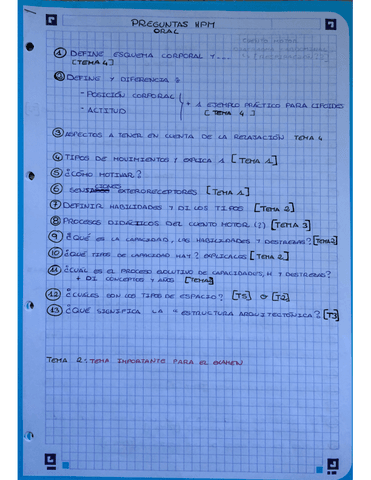 PREGUNTAS HPM
ORAL
① DEFINE ESQUEMA CORPORAL Y...
[TEMA 4]
② DEFINE Y DIFERENCIA:
- POSICIÓN CORPORAL
- ACTITUD
+ 1 EJEMPLO PRÁCTICO PARA
[TEMA 4]
③ ASPECTOS A TENER EN CUENTA DE LA RELAJACIÓN TEMA 4
④ TIPOS DE MOVIMIENTOS Y EXPLICA 1 [TEMA 1]
⑤ ¿CÓMO MOTIVAR?
⑥ EXTERORECEPTORES [TEMA 1]
⑦ DEFINIR HABILIDADES Y DI LOS TIPOS [TEMA 2]
⑧ PROCESOS DIDÁCTICOS DEL CUENTO MOTOR (?) [TEMA 3]
⑨ ¿QUÉ ES LA CAPACIDAD, LAS HABILIDADES Y DESTREZAS? [TEMA 2]
⑩ ¿QUÉ TIPOS DE CAPACIDAD HAY? EXPLICALOS [TEMA 2]
⑪ ¿CUAL ES EL PROCESO EVOLUTIVO DE CAPACIDADES, H Y DESTREZAS?
+ DI CONCEPTOS Y AÑOS [TEMA]
⑫ ¿CUALES SON LOS TIPOS DE ESPACIO? [T5] O [T2]
⑬ ¿QUÉ SIGNIFICA LA "ESTRUCTURA ARQUITECTÓNICA"? [T3]
TEMA 2: TEMA IMPORTANTE PARA EL EXAMEN